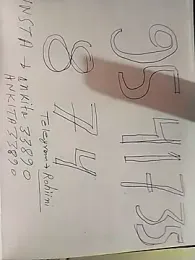 95 41735
8 74
Telegram + Rohini
INSTA + ankita 33890
ANKITA 33890